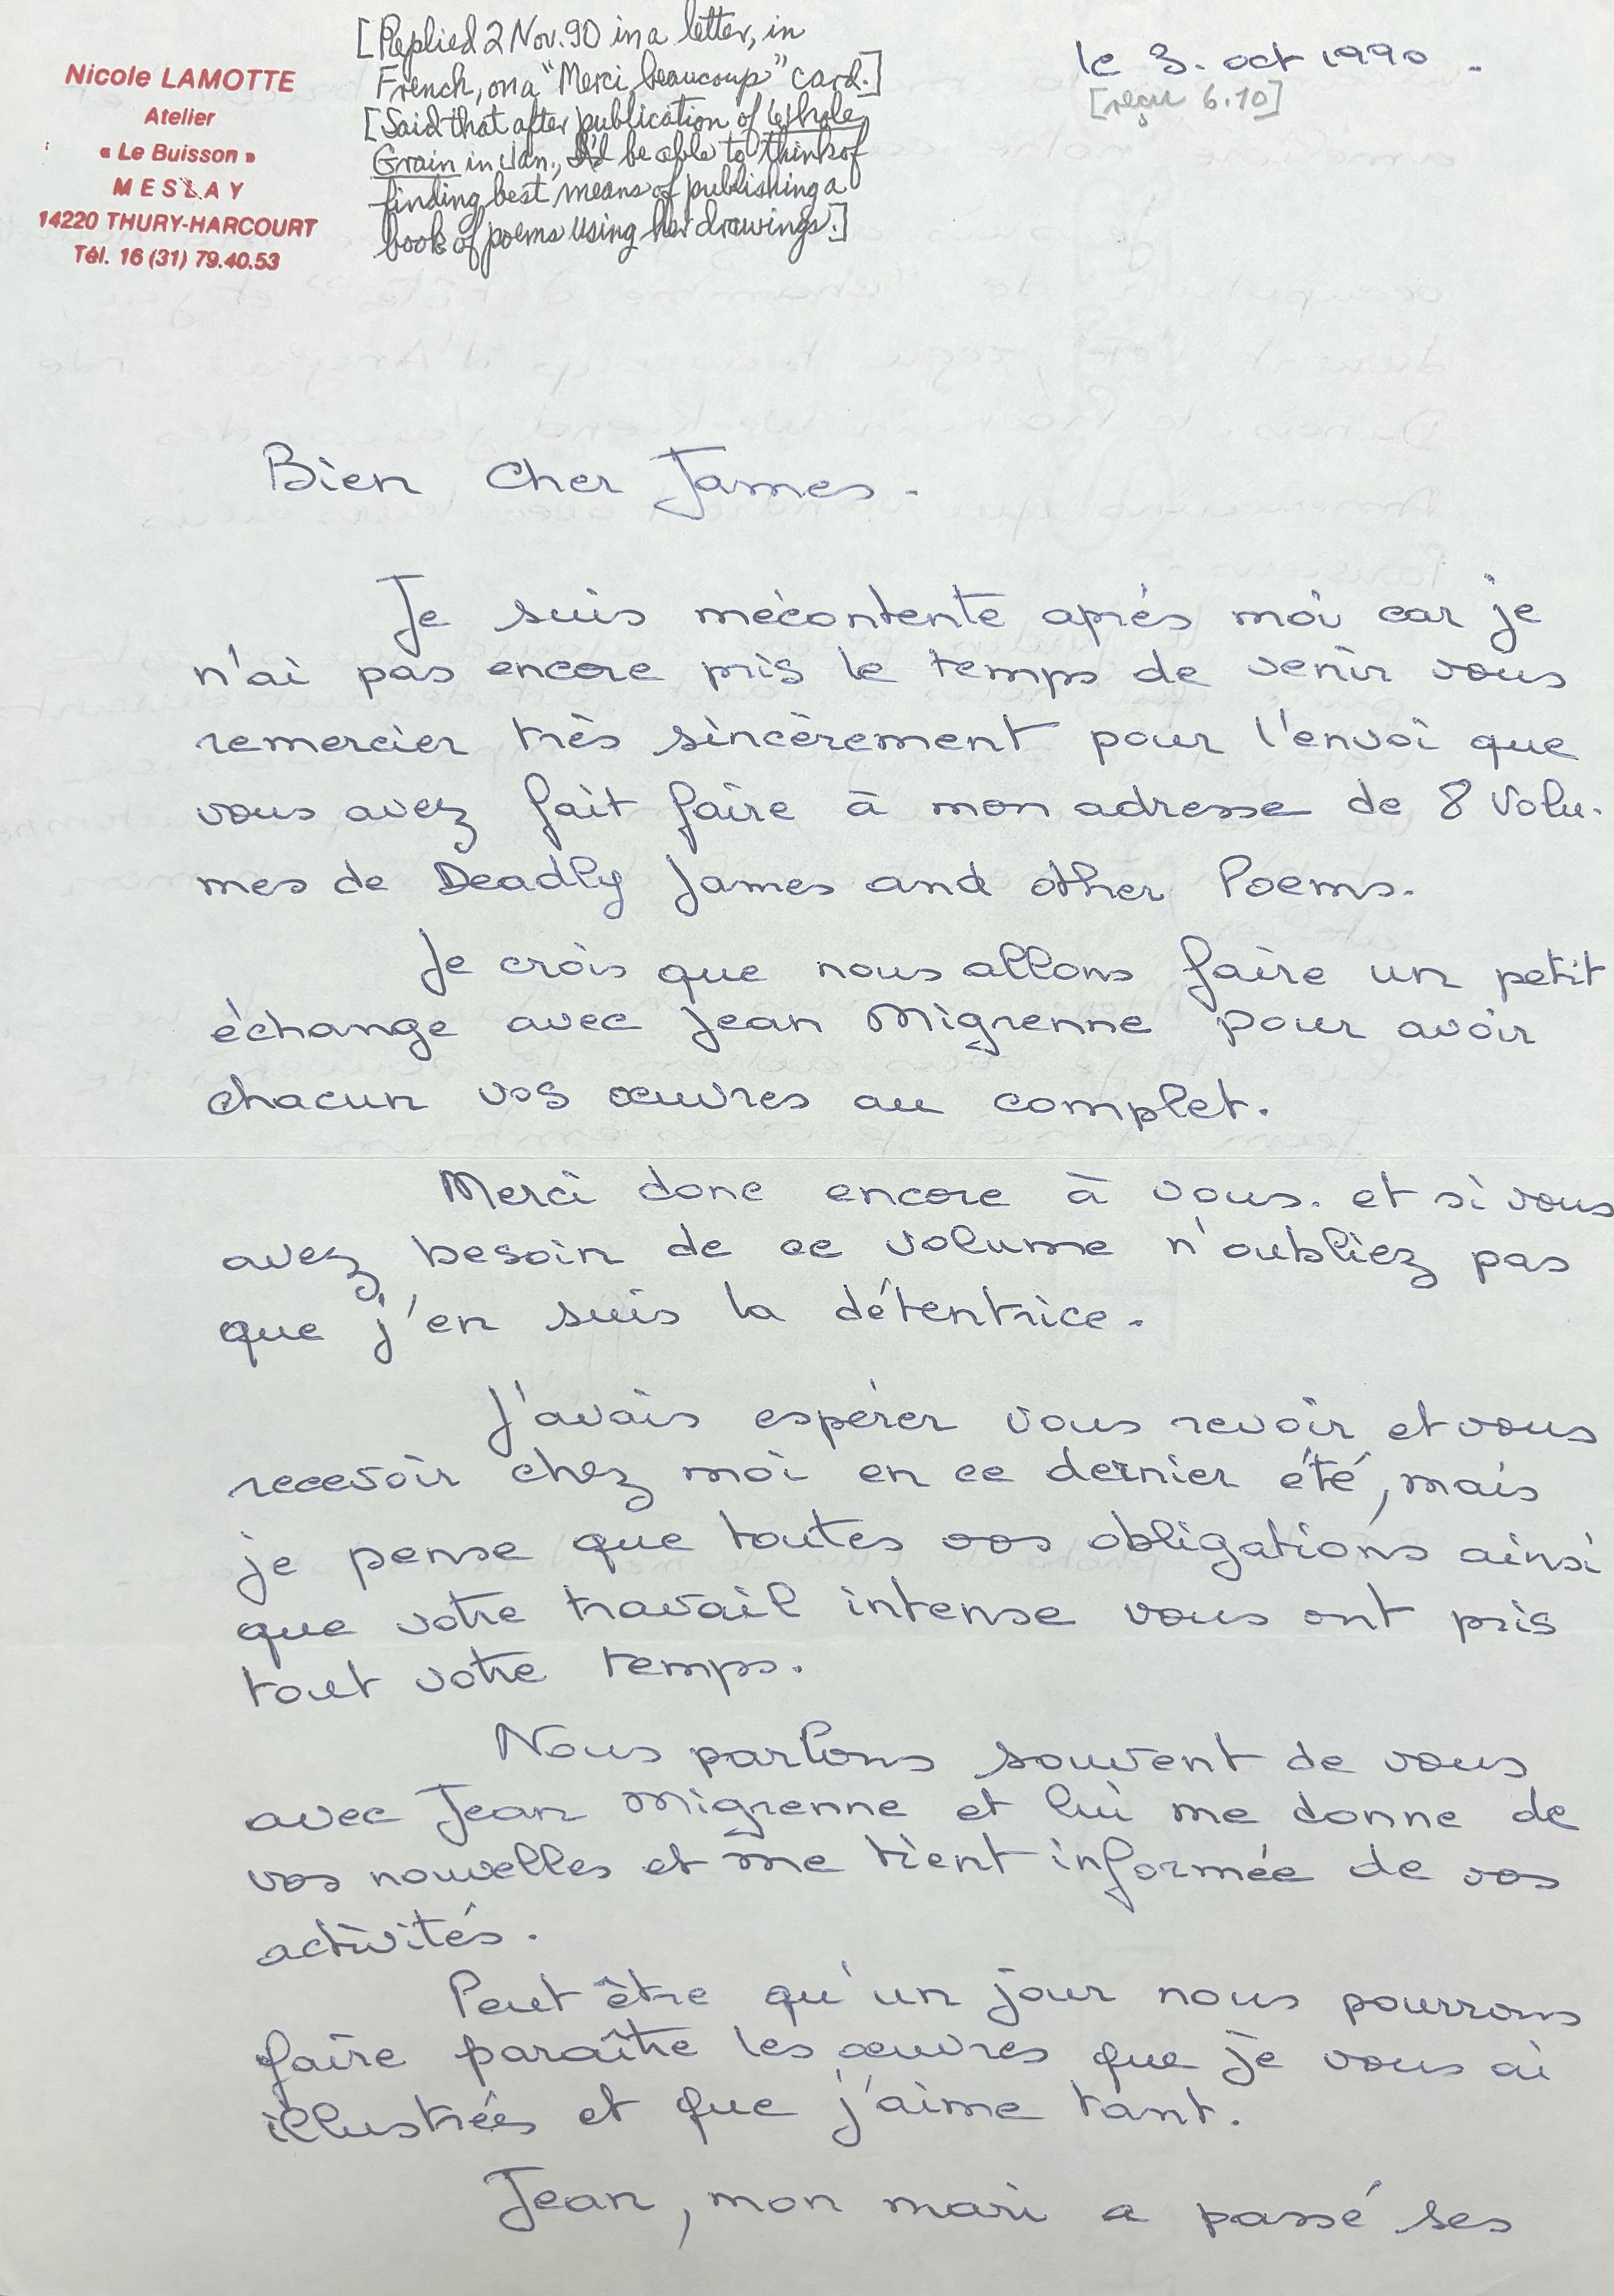 Nicole LAMOTTE
Atelier
« Le Buisson »
MESLAY
14220 THURY-HARCOURT
Tél. 16 (31) 79.40.53
[Replied 2 Nov. 90 in a letter, in
French, on a "Merci beaucoup" card.]
[Said that after publication of Whole
Grain in Jan., I'd be able to think of
finding best means of publishing a
book of poems using her drawings.]
le 3. oct 1990.
[reçu 6.10]
Bien cher James.
Je suis mécontente après moi car je
n'ai pas encore pris le temps de venir vous
remercier très sincèrement pour l'envoi que
vous avez fait faire à mon adresse de 8 Volu-
mes de Deadly James and other Poems.
Je crois que nous allons faire un petit
échange avec Jean Migrenne pour avoir
chacun vos œuvres au complet.
Merci donc encore à vous. et si vous
avez besoin de ce volume n'oubliez pas
que j'en suis la détentrice.
J'avais espérer vous revoir et vous
recevoir chez moi en ce dernier été, mais
je pense que toutes vos obligations ainsi
que votre travail intense vous ont pris
tout votre temps.
Nous parlons souvent de vous
avec Jean Migrenne et lui me donne de
vos nouvelles et me tient informée de vos
activités.
Peut être qu'un jour nous pourrons
faire paraître les œuvres que je vous ai
illustrées et que j'aime tant.
Jean, mon mari a passé ses